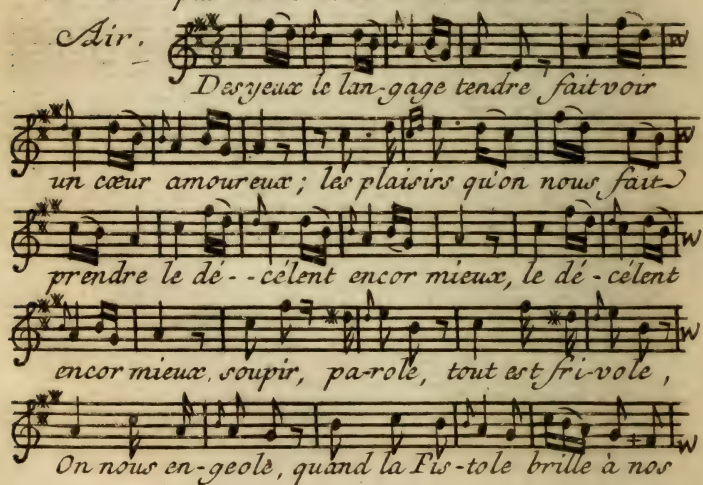 Air.
Des yeux le lan-gage tendre fait voir
un cœur amoureux; les plaisirs qu'on nous fait
prendre le dé--célent encor mieux, le dé-célent
encor mieux, soupir, pa-role, tout est fri-vole,
On nous en-geole, quand la Pis-tole brille à nos